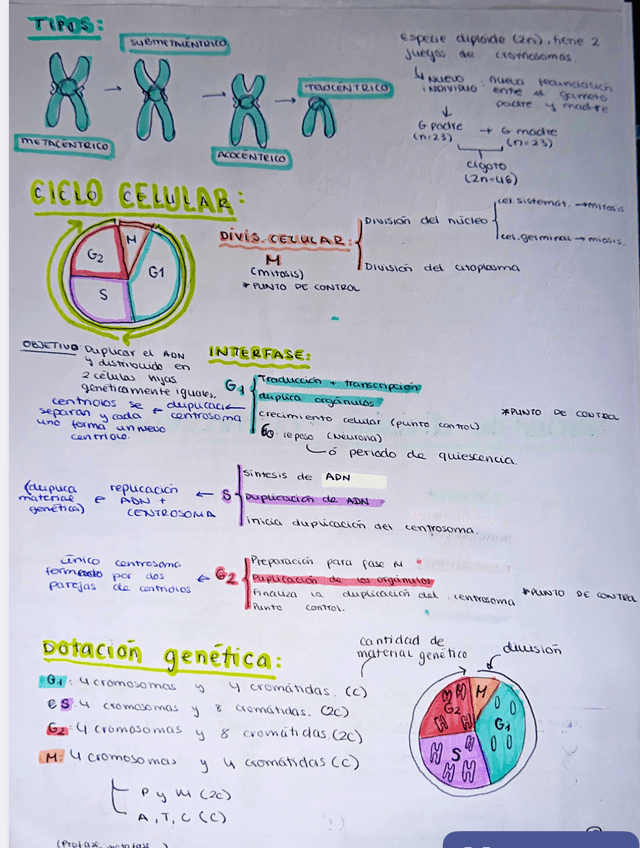 TIPOS:
SUBMETACÉNTRICO
TELOCÉNTRICO
METACÉNTRICO
ACOCÉNTRICO
Especie diploide (2n), tiene 2
juegos de cromosomas.
↳ NUEVO INDIVIDUO: nueva fecundación
entre el gameto
padre y madre
↓
G padre + G madre
(n=23) (n=23)
Cigoto
(2n=46)
CICLO CELULAR:
M
G2
G1
S
DIVIS. CELULAR:
M
(mitosis)
* PUNTO DE CONTROL
División del núcleo
cel. sistemát. → mitosis
cel. germinal → miosis.
División del citoplasma
OBJETIVO: Duplicar el ADN
y distribuido en
2 células hijas
genéticamente iguales.
INTERFASE:
G1
Traducción + transcripción
duplica orgánulos
crecimiento celular (punto control)
G0: reposo (neurona)
↳ ó periodo de quiescencia.
* PUNTO DE CONTROL
centriolos se ← duplicaci ←
separan y cada centrosoma
uno forma un nuevo
centriolo.
S
Síntesis de ADN
Duplicación de ADN
inicia duplicación del centrosoma.
(duplica
material
genética)
← replicación ←
ADN +
CENTROSOMA
G2
Preparación para fase M
Duplicación de los orgánulos
Finaliza la duplicación del centrosoma
Punto control.
* PUNTO DE CONTROL
único centrosoma
formado por dos ←
parejas de centriolos
Dotación genética:
G1: 4 cromosomas y 4 cromátidas. (c)
S: 4 cromosomas y 8 cromátidas. (2c)
G2: 4 cromosomas y 8 cromátidas. (2c)
M: 4 cromosomas y 4 cromátidas (c)
P y M (2c)
A, T, C (c)
cantidad de
material genético
división
M
G2
G1
S